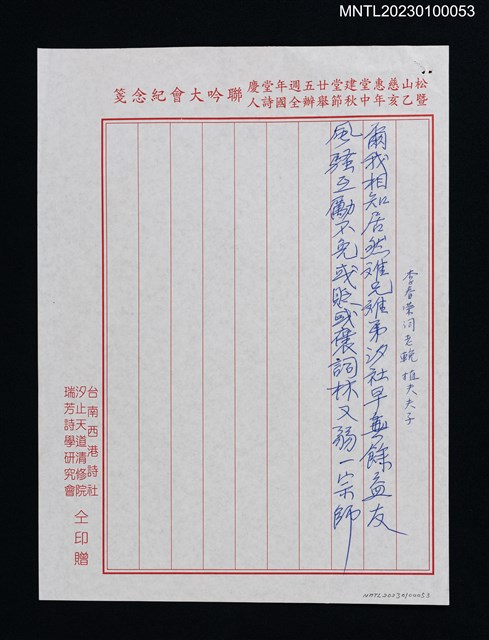 MNTL20230100053
松山慈惠堂建堂廿五週年堂慶
暨乙亥年中秋節舉辦全國詩人
聯吟大會紀念箋
李春榮詞長輓植夫夫子
爾我相知居然難兄難弟汐社早無餘益友
風騷互勵不免或貶或褒詞林又弱一宗師
台南西港詩社
汐止天道清修院
瑞芳詩學研究會
仝印贈
MNTL20230100053